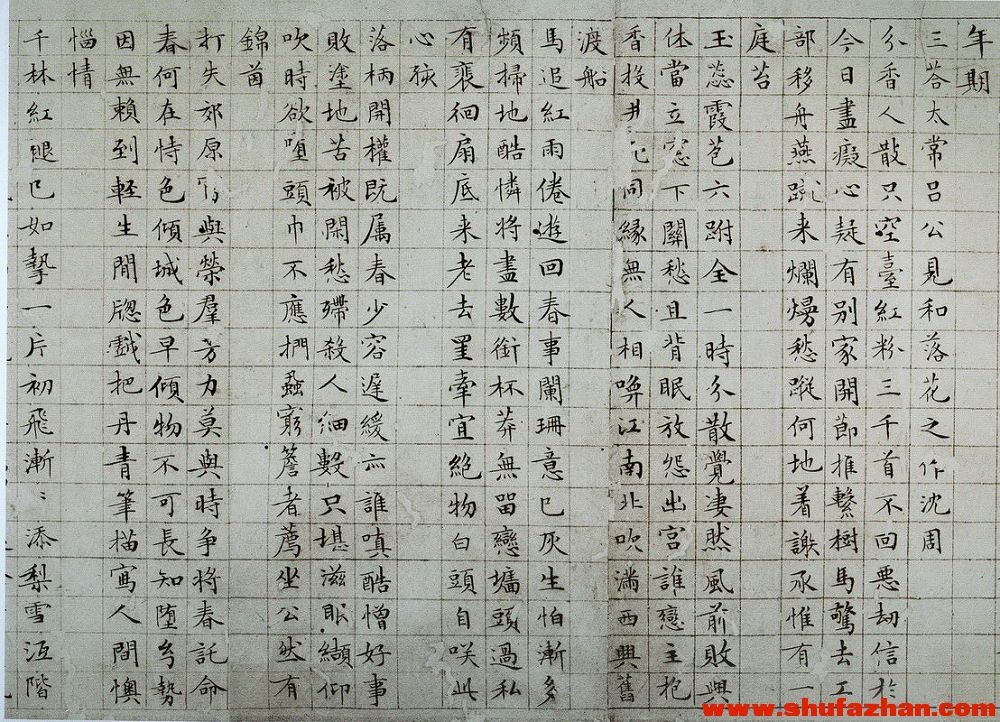 年期
三答太常吕公見和落花之作沈周
分香人散只空臺紅粉三千首不回悪劫信於
今日盡癡心疑有别家開節推繫樹馬驚去工
部移舟燕蹴来爛熳愁蹤何地着謝承惟有一
庭苔
玉蕊霞苞六跗全一時分散覺凄然風前敗興
休當立窓下關愁且背眠放怨出宫誰戀主抱
香投井死同縁無人相喚江南北吹满西興舊
渡船
馬追紅雨倦遊回春事闌珊意已灰生怕漸多
頻掃地酷憐將盡數銜杯莽無留戀墻頭過私
有褱徊扇底来老去罣牽宜絶物白頭自咲此
心孩
落柄開權既属春少容遲緩亦誰嗔酷憎好事
敗塗地苦被閑愁殢殺人細數只堪滋眼纈仰
吹時欲堕頭巾不應捫蝨窮簷者薦坐公然有
錦茵
打失郊原與榮羣芳力莫與時争將春託命
春何在恃色傾城色早傾物不可長知堕兮勢
因無賴到輕生閒牎戲把丹青筆描寫人間懊
惱情
千林紅褪已如摯一片初飛漸〻添梨雪沍階
www.shufazhan.com